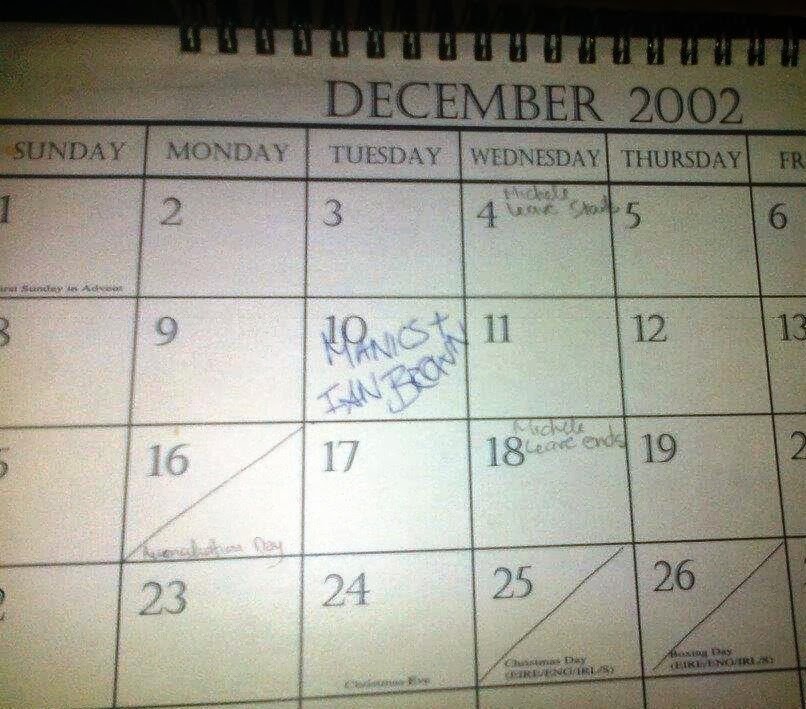 DECEMBER 2002
SUNDAY MONDAY TUESDAY WEDNESDAY THURSDAY FR
1 2 3 4 Michele 5 6
Leave Starts
First Sunday in Advent
8 9 10 11 12 13
MANICS +
IAN BROWN
16 17 18 Michele 19 2
Leave ends
Day
23 24 25 26
Christmas Eve
Christmas Day
(EIRE/ENG/IRL/S)
Boxing Day
(EIRE/ENG/IRL/S)